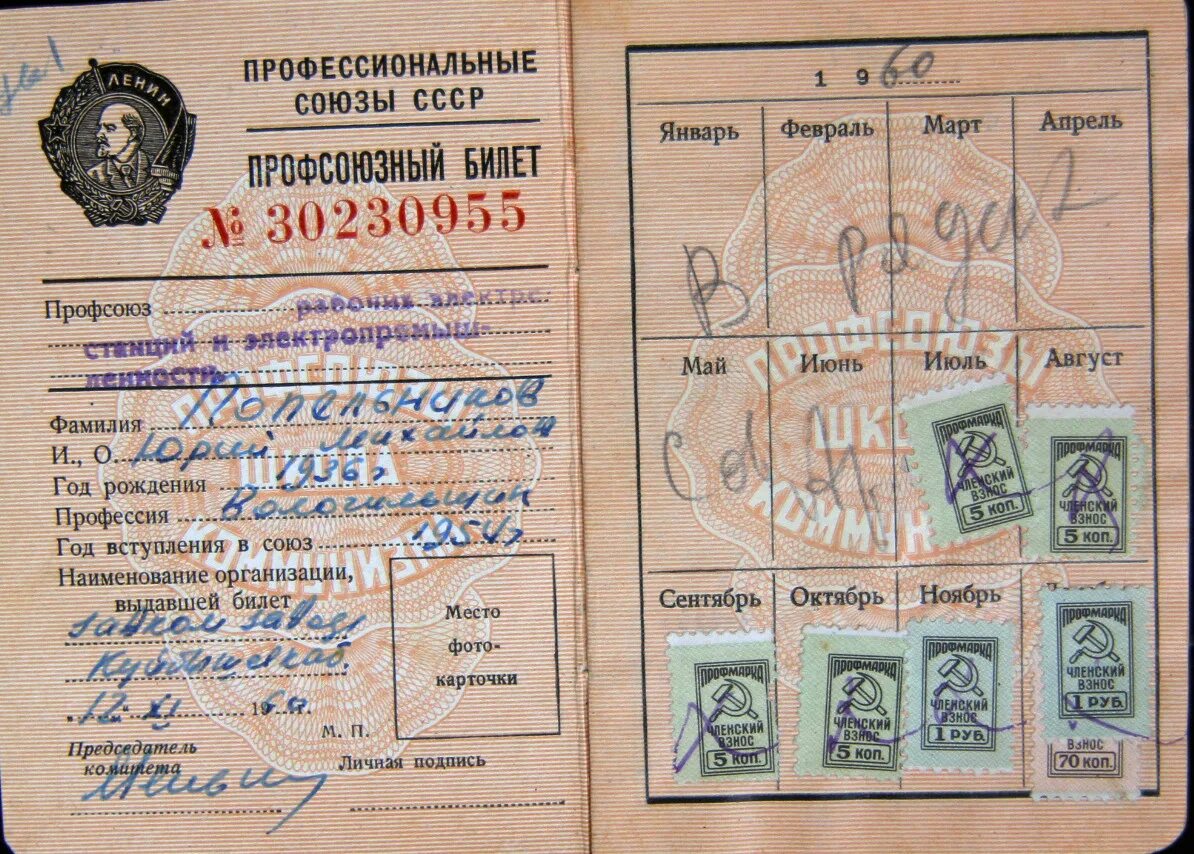 ЛЕНИН
ПРОФЕССИОНАЛЬНЫЕ
СОЮЗЫ СССР
ПРОФСОЮЗНЫЙ БИЛЕТ
№ 30230955
Профсоюз рабочих электро-
станций и электропромыш-
ленности
Фамилия Попельников
И., О. Юрий Михайлов
Год рождения 1936 г
Профессия
Год вступления в союз 1954 г
Наименование организации,
выдавшей билет
завком завода
12 XI 1960 г.
Место
фото-
карточки
М. П.
Председатель
комитета
Личная подпись
1960
Январь Февраль Март Апрель
В рядах
Май Июнь Июль Август
Сов.
ПРОФМАРКА
ЧЛЕНСКИЙ
ВЗНОС
5 КОП.
ПРОФМАРКА
ЧЛЕНСКИЙ
ВЗНОС
5 КОП.
Сентябрь Октябрь Ноябрь
ПРОФМАРКА
ЧЛЕНСКИЙ
ВЗНОС
5 КОП.
ПРОФМАРКА
ЧЛЕНСКИЙ
ВЗНОС
5 КОП.
ПРОФМАРКА
ЧЛЕНСКИЙ
ВЗНОС
1 РУБ.
ПРОФМАРКА
ЧЛЕНСКИЙ
ВЗНОС
1 РУБ.
ВЗНОС
70 КОП.
ПРОФСОЮЗЫ
ШКОЛА
КОММУНИЗМА